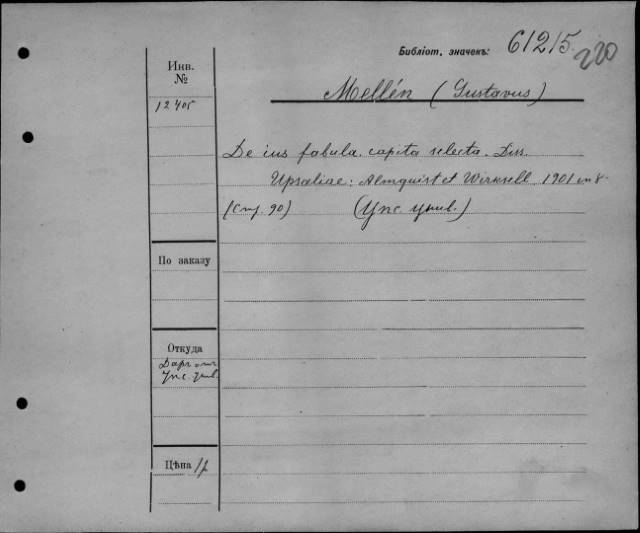 Библіот. значекъ: 61215
220
Инв.
№
Mellén (Gustavus)
12405
De ius fabula capita selecta. Diss.
Upsaliae: Almquist et Wicksell 1901 in 8°
(Стр. 90) (Упс. унив.)
По заказу
Откуда
Даръ отъ
Упс. унив.
Цѣна 1р